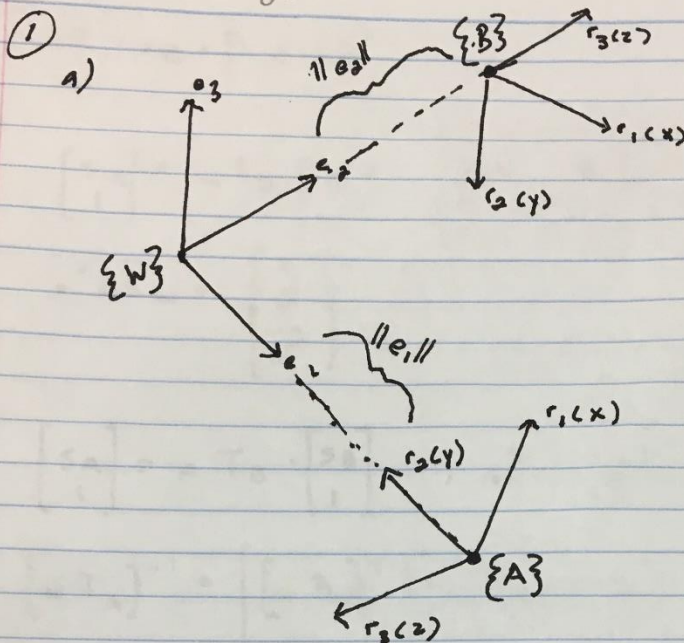 ①
a)
e3
||e2||
{B}
r3(z)
r1(x)
r2(y)
e2
{W}
||e1||
e1
r2(y)
r1(x)
{A}
r3(z)